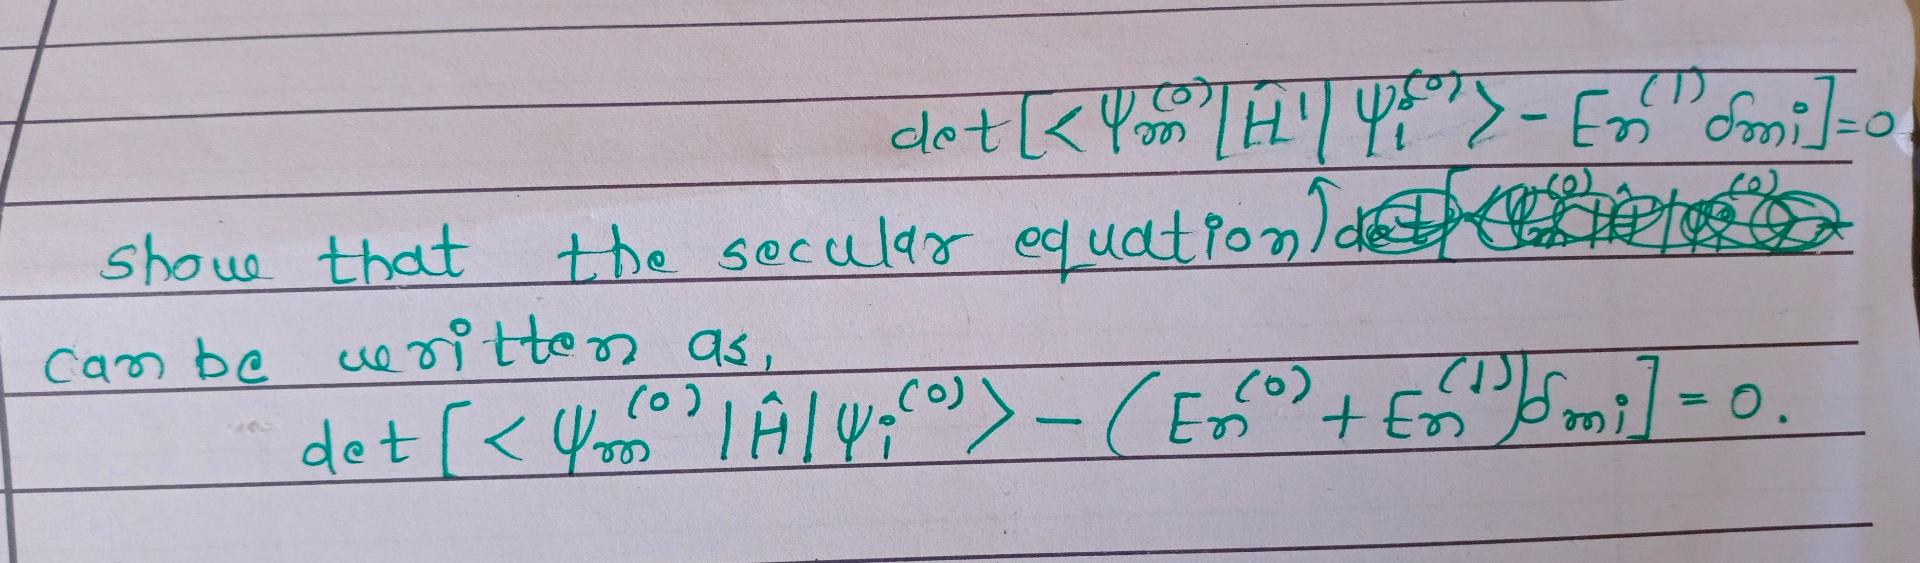 det[<Ψm^(0)|Ĥ'|Ψi^(0)> - En^(1) δmi]=0
show that the secular equation↑
can be written as,
det[<Ψm^(0)|Ĥ|Ψi^(0)> - (En^(0) + En^(1))δmi] = 0.